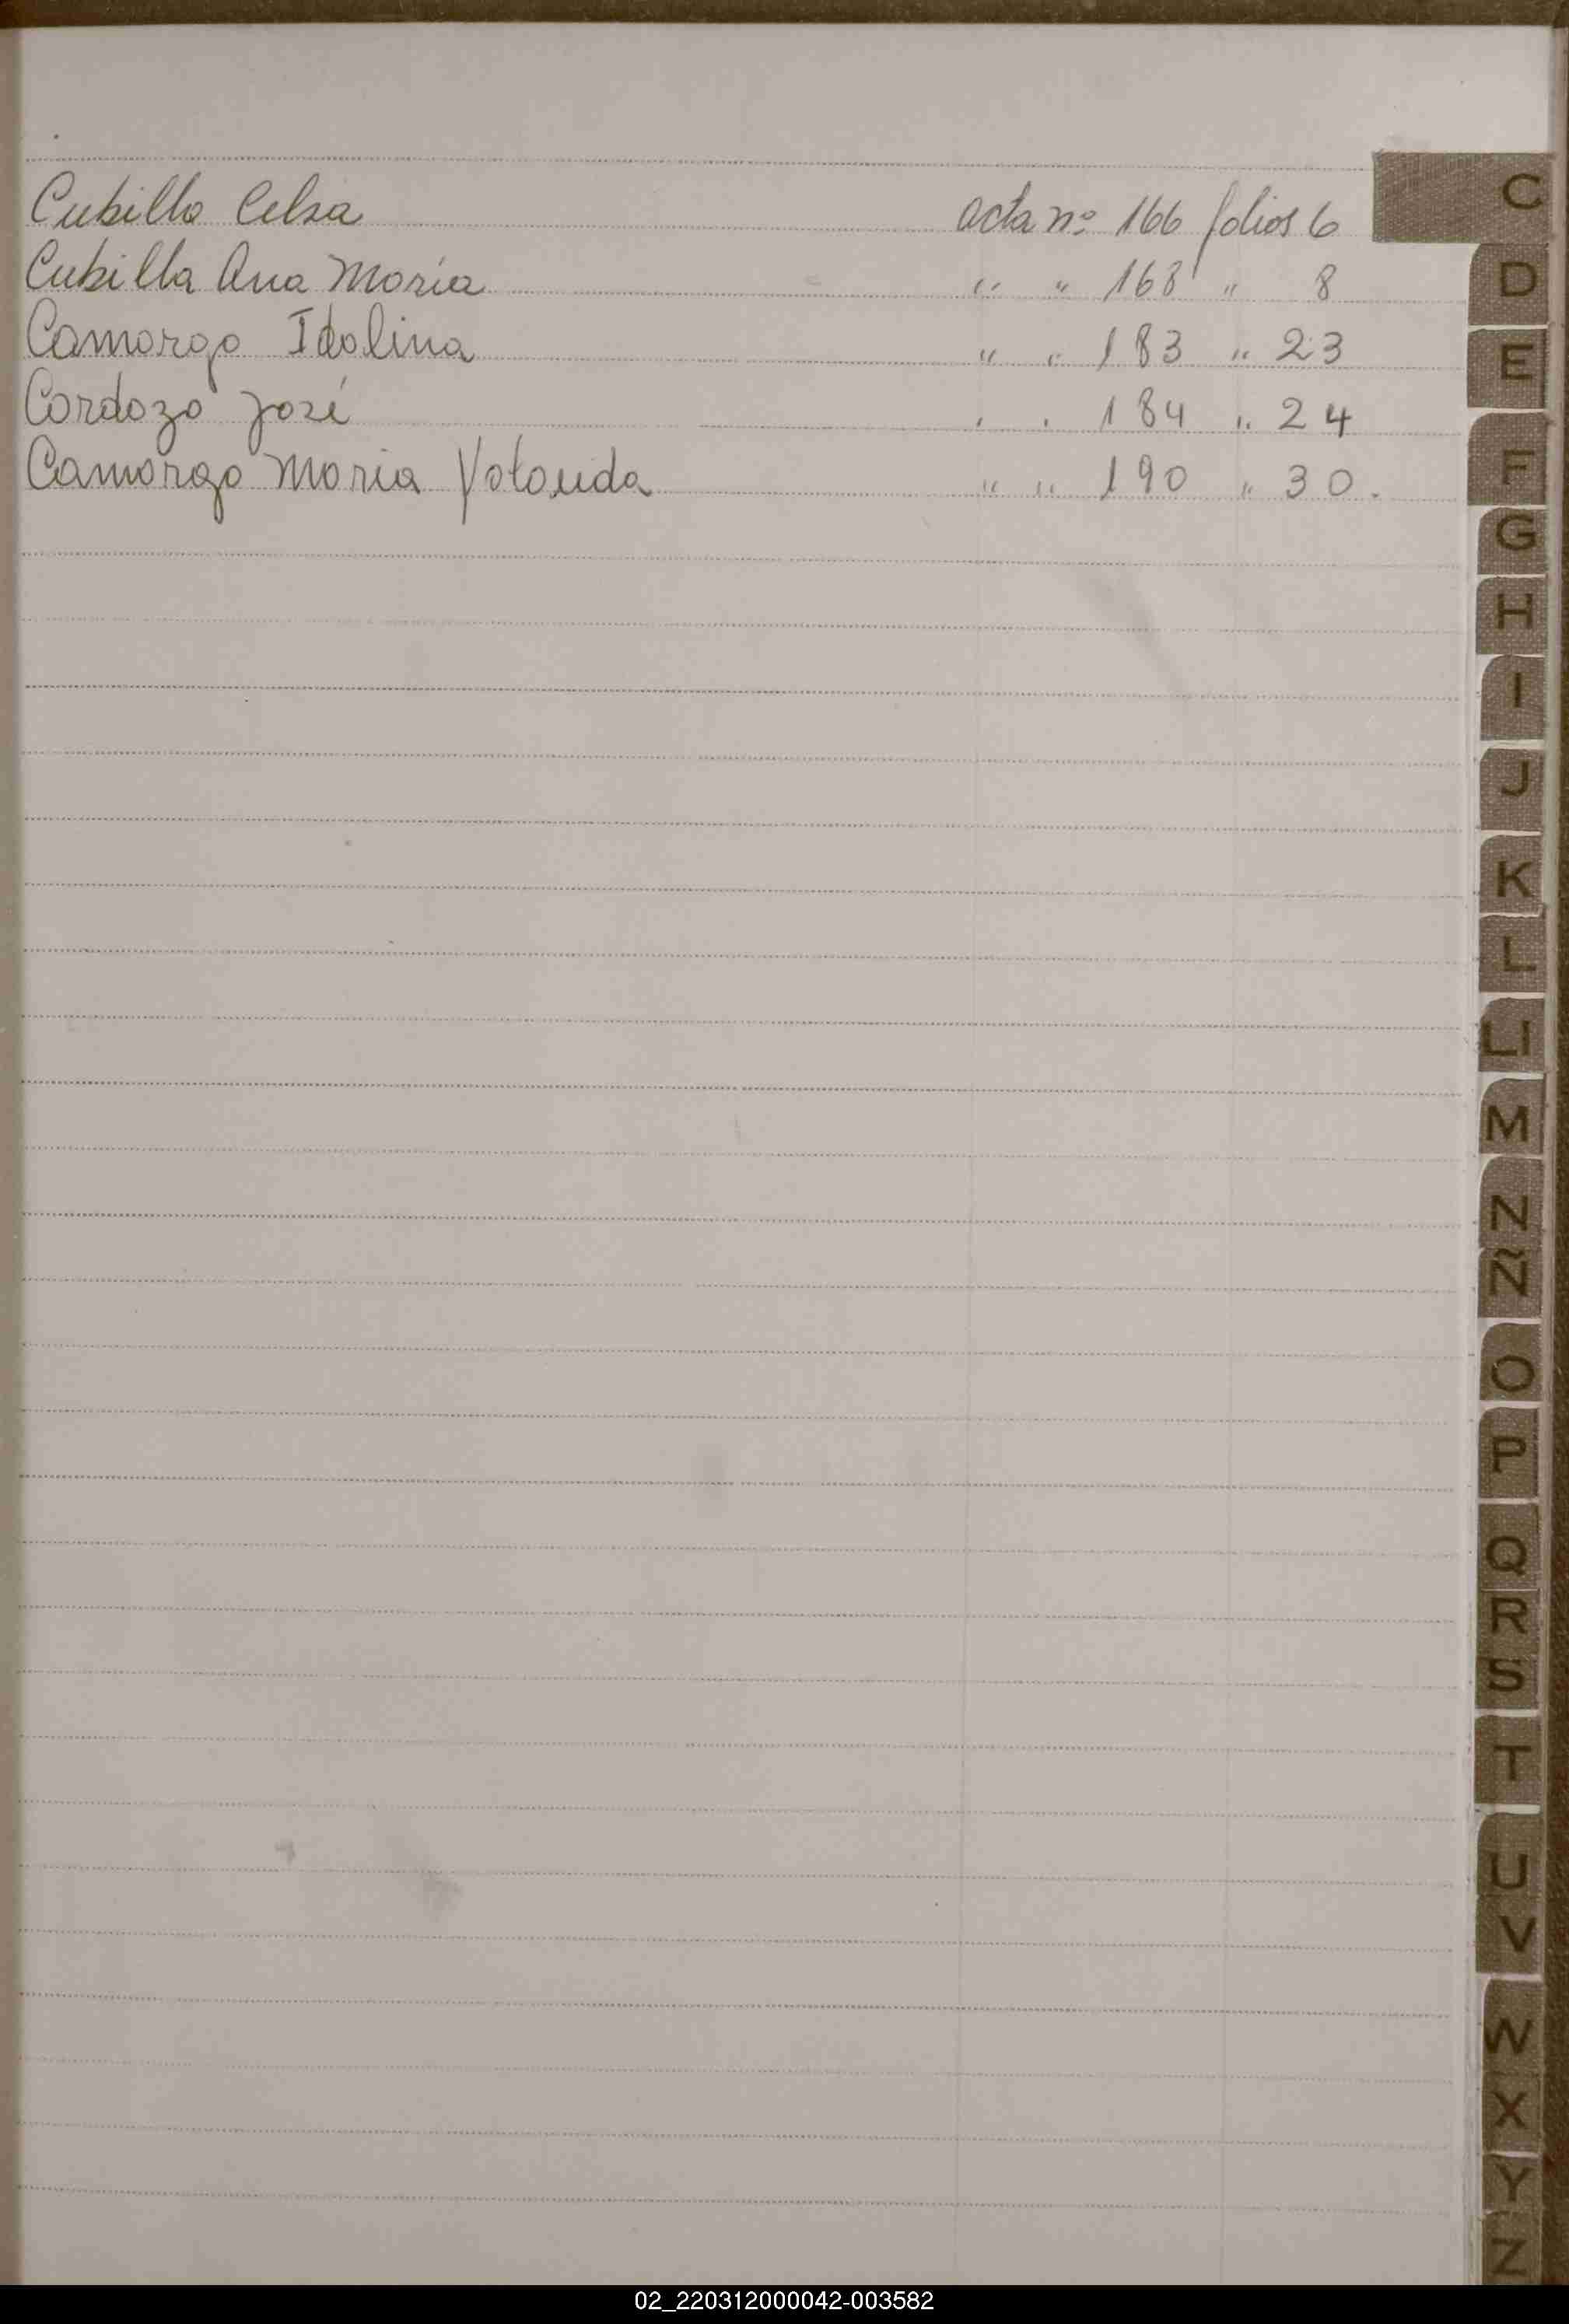 Cubilla Celsa acta nº 166 folios 6 C
Cubilla Ana María " " 168 " 8 D
Camargo Idalina " " 183 " 23 E
Cardozo José " " 184 " 24
Camargo Maria Yolanda " " 190 " 30. F
G
H
I
J
K
L
Ll
M
N
Ñ
O
P
Q
R
S
T
U
V
W
X
Y
Z
02_220312000042-003582